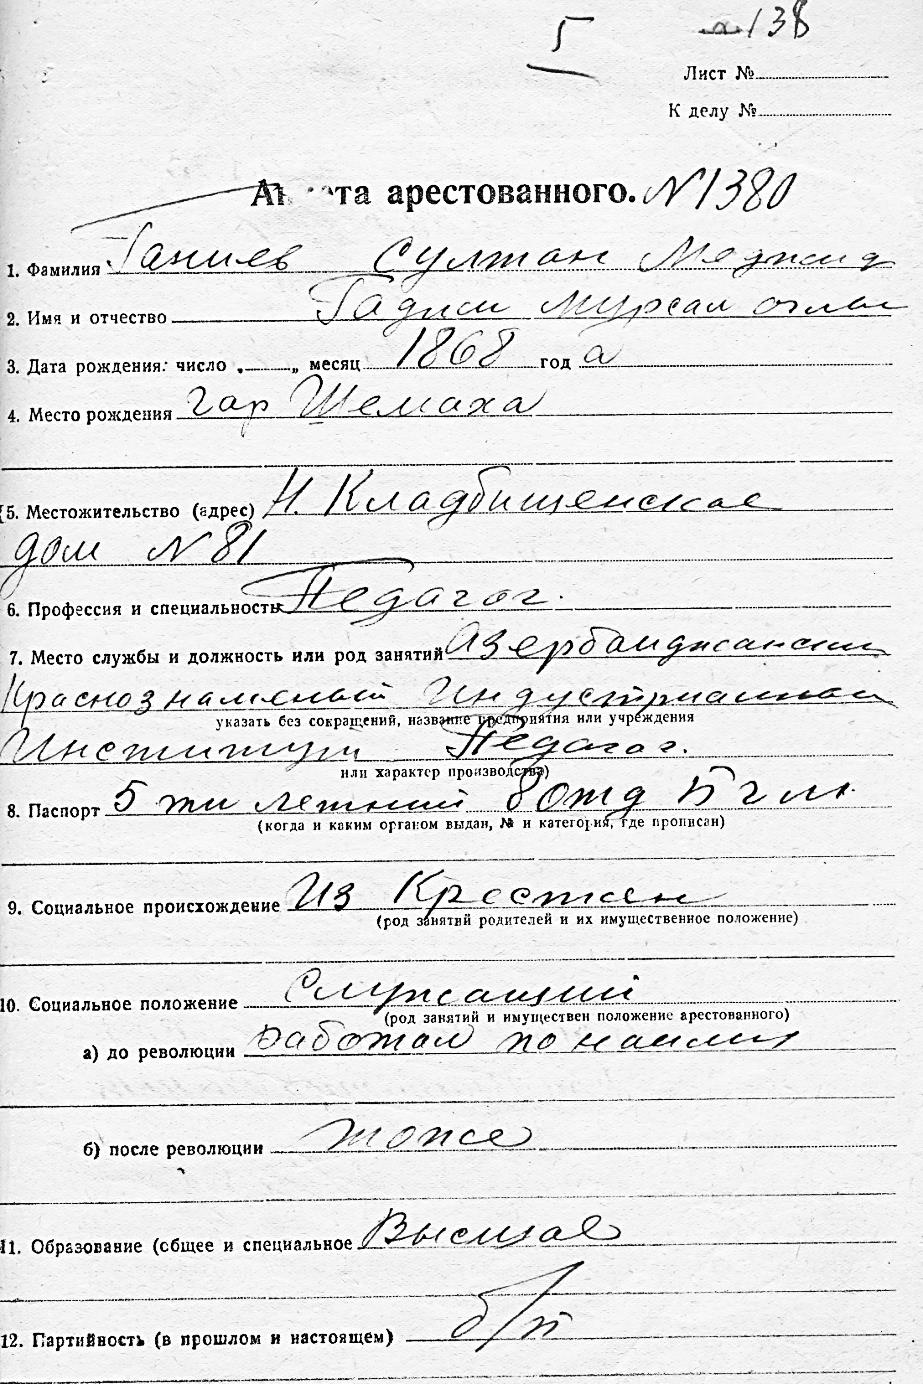 5 138
Лист №
К делу №
Анкета арестованного. № 1380
1. Фамилия Ганиев Султан Меджид
2. Имя и отчество Гаджи Мурсал оглы
3. Дата рождения: число „ “ месяц 1868 год а
4. Место рождения гор Шемаха
5. Местожительство (адрес) Н. Кладбищенское
дом № 81
6. Профессия и специальность Педагог.
7. Место службы и должность или род занятий Азербайджанский
Краснознаменый Индустриальный
указать без сокращений, название предприятия или учреждения
Институт Педагог.
или характер производства)
8. Паспорт 5 ти летний 8 отд БГМ
(когда и каким органом выдан, № и категория, где прописан)
9. Социальное происхождение Из Крестьян
(род занятий родителей и их имущественное положение)
10. Социальное положение Служащий
(род занятий и имуществен положение арестованного)
а) до революции Работал по найму
б) после революции тоже
11. Образование (общее и специальное Высшее
12. Партийность (в прошлом и настоящем) б/п